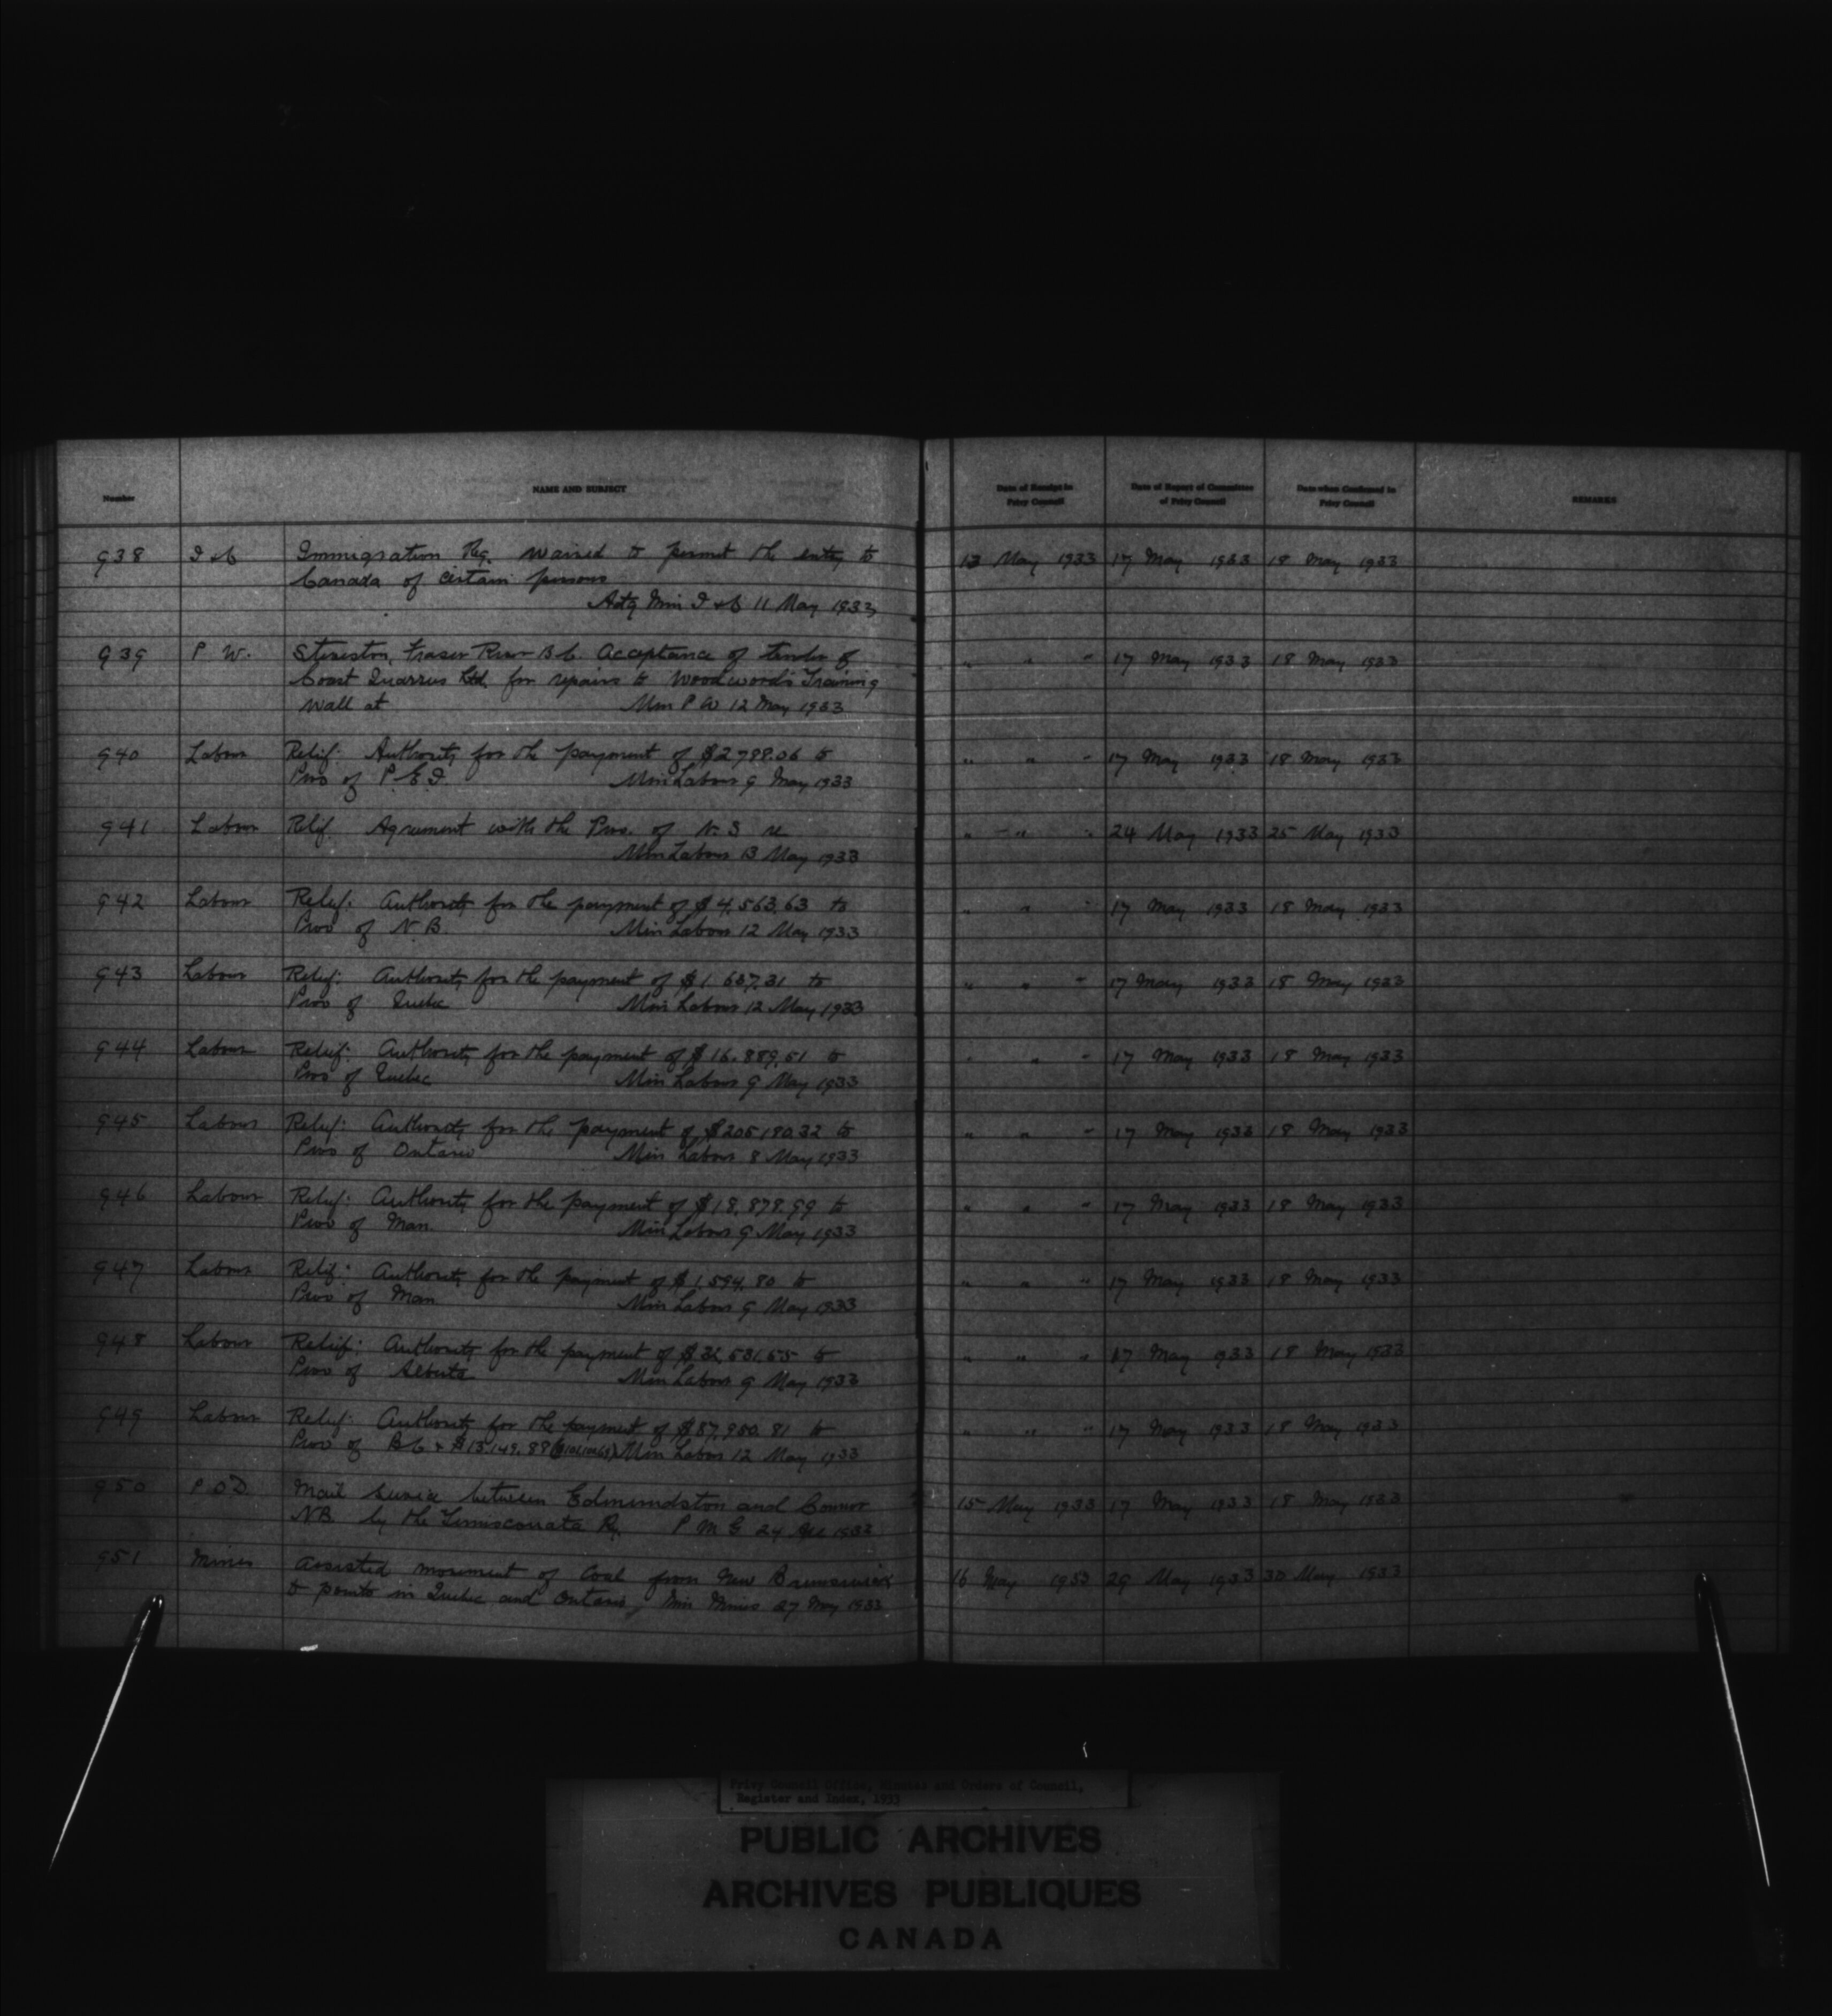 Number
NAME AND SUBJECT
Date of Receipt in
Privy Council
Date of Report of Committee
of Privy Council
Date when Confirmed in
Privy Council
REMARKS
938 I & C Immigration Reg. waived to permit the entry to 13 May 1933 17 May 1933 18 May 1933
Canada of certain persons
Actg Min I & C 11 May 1933
939 P. W. Steveston, Fraser River B C. Acceptance of tender of " " " 17 May 1933 18 May 1933
Coast Quarries Ltd. for repairs to Woodwards Training
Wall at Min P W 12 May 1933
940 Labour Relief: Authority for the payment of $2,798.06 to " " " 17 May 1933 18 May 1933
Prov of P. E. I. Min Labour 9 May 1933
941 Labour Relief Agreement with the Prov. of N. S re " " " 24 May 1933 25 May 1933
Min Labour 13 May 1933
942 Labour Relief: Authority for the payment of $4,563.63 to " " " 17 May 1933 18 May 1933
Prov of N. B. Min Labour 12 May 1933
943 Labour Relief: Authority for the payment of $1,637.31 to " " " 17 May 1933 18 May 1933
Prov of Quebec Min Labour 12 May 1933
944 Labour Relief: Authority for the payment of $16,889.51 to " " " 17 May 1933 18 May 1933
Prov of Quebec Min Labour 9 May 1933
945 Labour Relief: Authority for the payment of $205,180.32 to " " " 17 May 1933 18 May 1933
Prov of Ontario Min Labour 8 May 1933
946 Labour Relief: Authority for the payment of $18,878.99 to " " " 17 May 1933 18 May 1933
Prov of Man. Min Labour 9 May 1933
947 Labour Relief: Authority for the payment of $1,594.80 to " " " 17 May 1933 18 May 1933
Prov of Man Min Labour 9 May 1933
948 Labour Relief: Authority for the payment of to " " " 17 May 1933 18 May 1933
Prov of Alberta Min Labour 9 May 1933
949 Labour Relief: Authority for the payment of $87,950.81 to " " " 17 May 1933 18 May 1933
Prov of B C & $13,149.88 Min Labour 12 May 1933
950 P. O D. Mail service between Edmundston and Connor 15 May 1933 17 May 1933 18 May 1933
N B. by the Temiscouata Ry. P M G 24
951 Mines Assisted movement of Coal from New Brunswick 16 May 1933 29 May 1933 30 May 1933
to points in Quebec and Ontario, Min Mines 27 May 1933
Privy Council Office, Minutes and Orders of Council,
Register and Index, 1933
PUBLIC ARCHIVES
ARCHIVES PUBLIQUES
CANADA